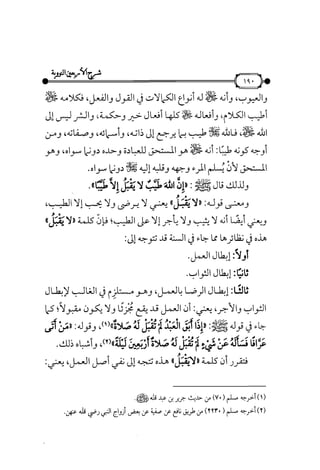 شرح الأربعين النووية
١٩٠
والعيوب، وأنه ﷻ له أنواع الكمالات في القول والفعل، فكلامه ﷻ
أطيب الكلام، وأفعاله ﷻ كلها أفعال خير وحكمة، والشر ليس إلى
الله ﷻ، فالله ﷻ طيب بما يرجع إلى ذاته، وأسمائه، وصفاته، ومن
أوجه كونه طيبًا: أنه ﷻ هو المستحق للعبادة وحده دونما سواه، وهو
المستحق لأن يُسلم المرء وجهه وقلبه إليه ﷻ دونما سواه.
ولذلك قال ﷺ: «إِنَّ اللهَ طَيِّبٌ لَا يَقْبَلُ إِلَّا طَيِّبًا».
ومعنى قوله: «لَا يَقْبَلُ» يعني لا يرضى ولا يحب إلا الطيب،
ويعني أيضًا أنه لا يثيب ولا يأجر إلا على الطيب؛ فإنّ كلمة «لَا يَقْبَلُ»
هذه في نظائرها مما جاء في السنة قد تتوجه إلى:
أولًا: إبطال العمل.
ثانيًا: إبطال الثواب.
ثالثًا: إبطال الرضا بالعمل، وهو مستلزم في الغالب لإبطال
الثواب والأجر، يعني: أن العمل قد يقع مُجزئًا ولا يكون مقبولًا؛ كما
جاء في قوله ﷺ: «إِذَا أَبَقَ الْعَبْدُ لَمْ تُقْبَلْ لَهُ صَلَاةٌ»(١)، وقوله: «مَنْ أَتَى
عَرَّافًا فَسَأَلَهُ عَنْ شَيْءٍ لَمْ تُقْبَلْ لَهُ صَلَاةٌ أَرْبَعِينَ لَيْلَةً»(٢)، وأشباه ذلك.
فتقرر أن كلمة «لَا يَقْبَلُ» هذه تتجه إلى نفي أصل العمل، يعني:
(١) أخرجه مسلم (٧٠) من حديث جرير بن عبد الله ﷺ.
(٢) أخرجه مسلم (٢٢٣٠) من طريق نافع عن صفية عن بعض أزواج النبي رضي الله عنهن.